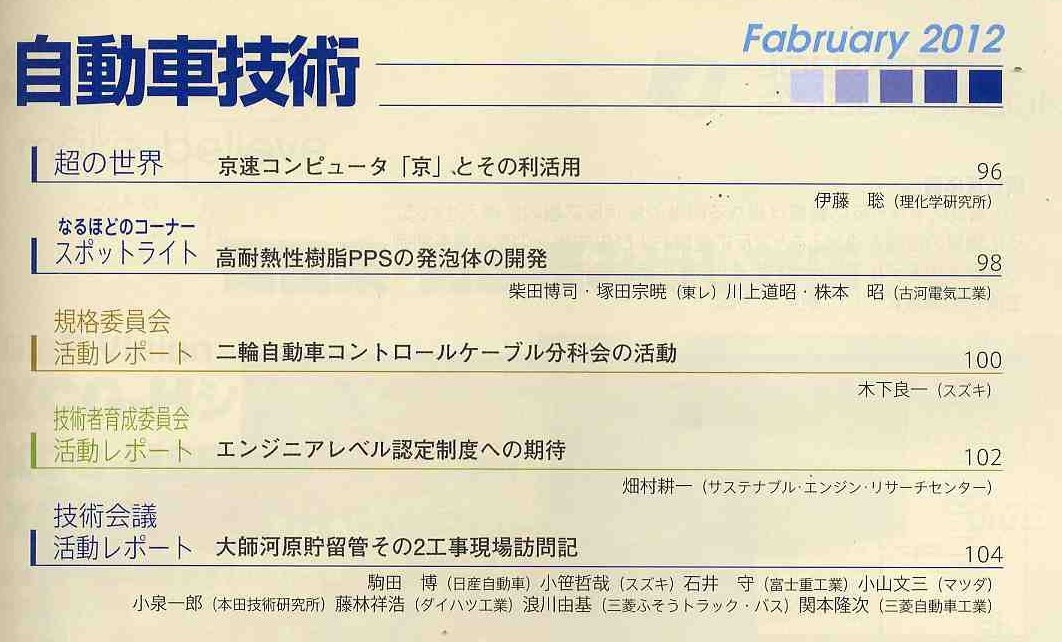 Fabruary 2012
自動車技術
超の世界 京速コンピュータ「京」とその利活用 96
伊藤 聡（理化学研究所）
なるほどのコーナー
スポットライト 高耐熱性樹脂PPSの発泡体の開発 98
柴田博司・塚田宗暁（東レ）川上道昭・株本 昭（古河電気工業）
規格委員会
活動レポート 二輪自動車コントロールケーブル分科会の活動 100
木下良一（スズキ）
技術者育成委員会
活動レポート エンジニアレベル認定制度への期待 102
畑村耕一（サステナブル・エンジン・リサーチセンター）
技術会議
活動レポート 大師河原貯留管その2工事現場訪問記 104
駒田 博（日産自動車）小笹哲哉（スズキ）石井 守（富士重工業）小山文三（マツダ）
小泉一郎（本田技術研究所）藤林祥浩（ダイハツ工業）浪川由基（三菱ふそうトラック・バス）関本隆次（三菱自動車工業）